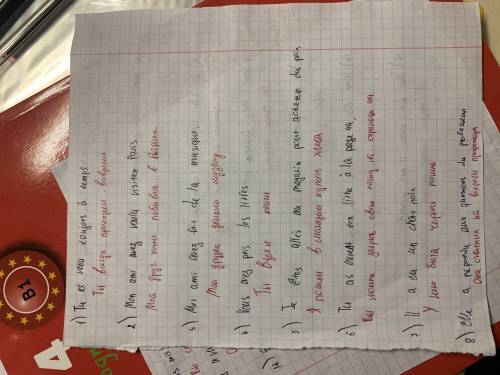 1) Tu es venu toujours à temps
Ты всегда приходил вовремя
2) Mon ami avez voulu visiter Paris
Мой друг хотел побывать в Париже
3) Mes ami avez fait de la musique
Мои друзья делали музыку
4) Vous avez pris les livres
Ты взял книги
5) Je êtes allés au magasin pour acheter du pain
Я пошёл в магазин купить хлеба
6) Tu as ouvert ton livre à la page
Вы можете открыть свою книгу на странице
7) Il a eu un chat noir
У него была черная кошка
8) elle a répondu aux questions du professeur
Она ответила на вопросы профессора
B1
4